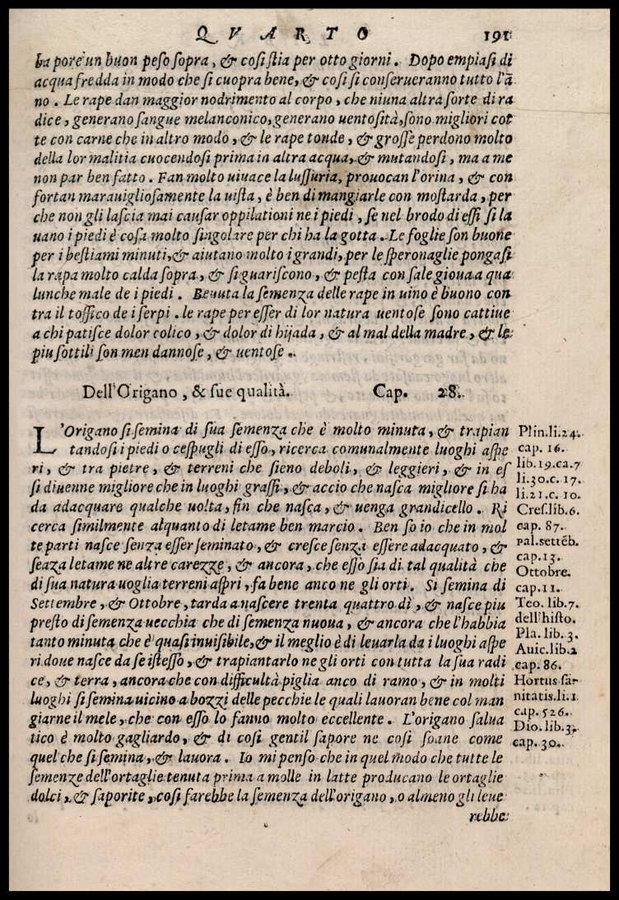 QVARTO 191
ba pore un buon peso sopra, & cosi stia per otto giorni. Dopo empiasi di
acqua fredda in modo che si cuopra bene, & cosi si conserueranno tutto l'ā
no. Le rape dan maggior nodrimento al corpo, che niuna altra sorte di ra
dice, generano sangue melanconico, generano uentosità, sono migliori cot
te con carne che in altro modo, & le rape tonde, & grosse perdono molto
della lor malitia cuocendosi prima in altra acqua, & mutandosi, ma a me
non par ben fatto. Fan molto uiuace la lussuria, prouocan l'orina, & con
fortan marauigliosamente la uista, è ben di mangiarle con mostarda, per
che non gli lascia mai causar oppilationi ne i piedi, se nel brodo di essi si la
uano i piedi è cosa molto singolare per chi ha la gotta. Le foglie son buone
per i bestiami minuti, & aiutano molto i grandi, per le speronaglie pongasi
la rapa molto calda sopra, & si guariscono, & pesta con sale gioua a qua
lunche male de i piedi. Beuuta la semenza delle rape in uino è buono con
tra il tossico de i serpi. le rape per esser di lor natura uentose sono cattiue
a chi patisce dolor colico, & dolor di hijada, & al mal della madre, & le
piu sottili son men dannose, & uentose.
Dell'Origano, & sue qualità. Cap. 28.
L'Origano si semina di sua semenza che è molto minuta, & trapian
tandosi i piedi o cespugli di esso, ricerca comunalmente luoghi aspe
ri, & tra pietre, & terreni che sieno deboli, & leggieri, & in es
si diuenne migliore che in luoghi grassi, & accio che nasca migliore si ha
da adacquare qualche uolta, fin che nasca, & uenga grandicello. Ri
cerca similmente alquanto di letame ben marcio. Ben so io che in mol
te parti nasce senza esser seminato, & cresce senza essere adacquato, &
seaza letame ne altre carezze, & ancora, che esso sia di tal qualità che
di sua natura uoglia terreni aspri, fa bene anco ne gli orti. Si semina di
Settembre, & Ottobre, tarda a nascere trenta quattro dì, & nasce piu
presto di semenza uecchia che di semenza nuoua, & ancora che l'habbia
tanto minuta che è quasi inuisibile, & il meglio è di leuarla da i luoghi aspe
ri doue nasce da se istesso, & trapiantarlo ne gli orti con tutta la sua radi
ce, & terra, ancora che con difficultà piglia anco di ramo, & in molti
luoghi si semina uicino a bozzi delle pecchie le quali lauoran bene col man
giarne il mele, che con esso lo fanno molto eccellente. L'origano salua
tico è molto gagliardo, & di cosi gentil sapore ne cosi soaue come
quel che si semina, & lauora. Io mi penso che in quel modo che tutte le
semenze dell'ortaglie tenuta prima a molle in latte producano le ortaglie
dolci, & saporite, cosi farebbe la semenza dell'origano, o almeno gli leue
rebbe
Plin.li.24.
cap. 16.
lib.19.ca.7
li.30.c. 17.
li.21.c. 10.
Cres.lib.6.
cap. 87.
pal.settēb.
cap.13.
Ottobre.
cap.11.
Teo. lib.7.
dell'histo.
Pla. lib. 3.
Auic.lib.2
cap. 86.
Hortus sa-
nitatis.li.1.
cap. 526.
Dio.lib.3.
cap. 30.